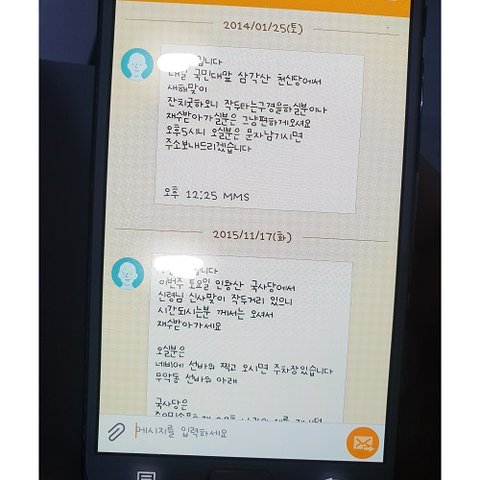 2014/01/25(토)
입니다
내일 국민대앞 삼각산 천신당에서
새해맞이
잔치굿하오니 작두타는구경을하실분이나
재수받아가실분은 그냥편하게오셔요
오후5시니 오실분은 문자남기시면
주소보내드리겠습니다
오후 12:25 MMS
2015/11/17(화)
입니다
이번주 토요일 인왕산 국사당에서
신령님 신사맞이 작두거리 있으니
시간되시는분 께서는 오셔서
재수받아가세요
오실분은
네비에 선바위 찍고 오시면 주차장있습니다
무악동 선바위 아래
국사당은
메시지를 입력하세요